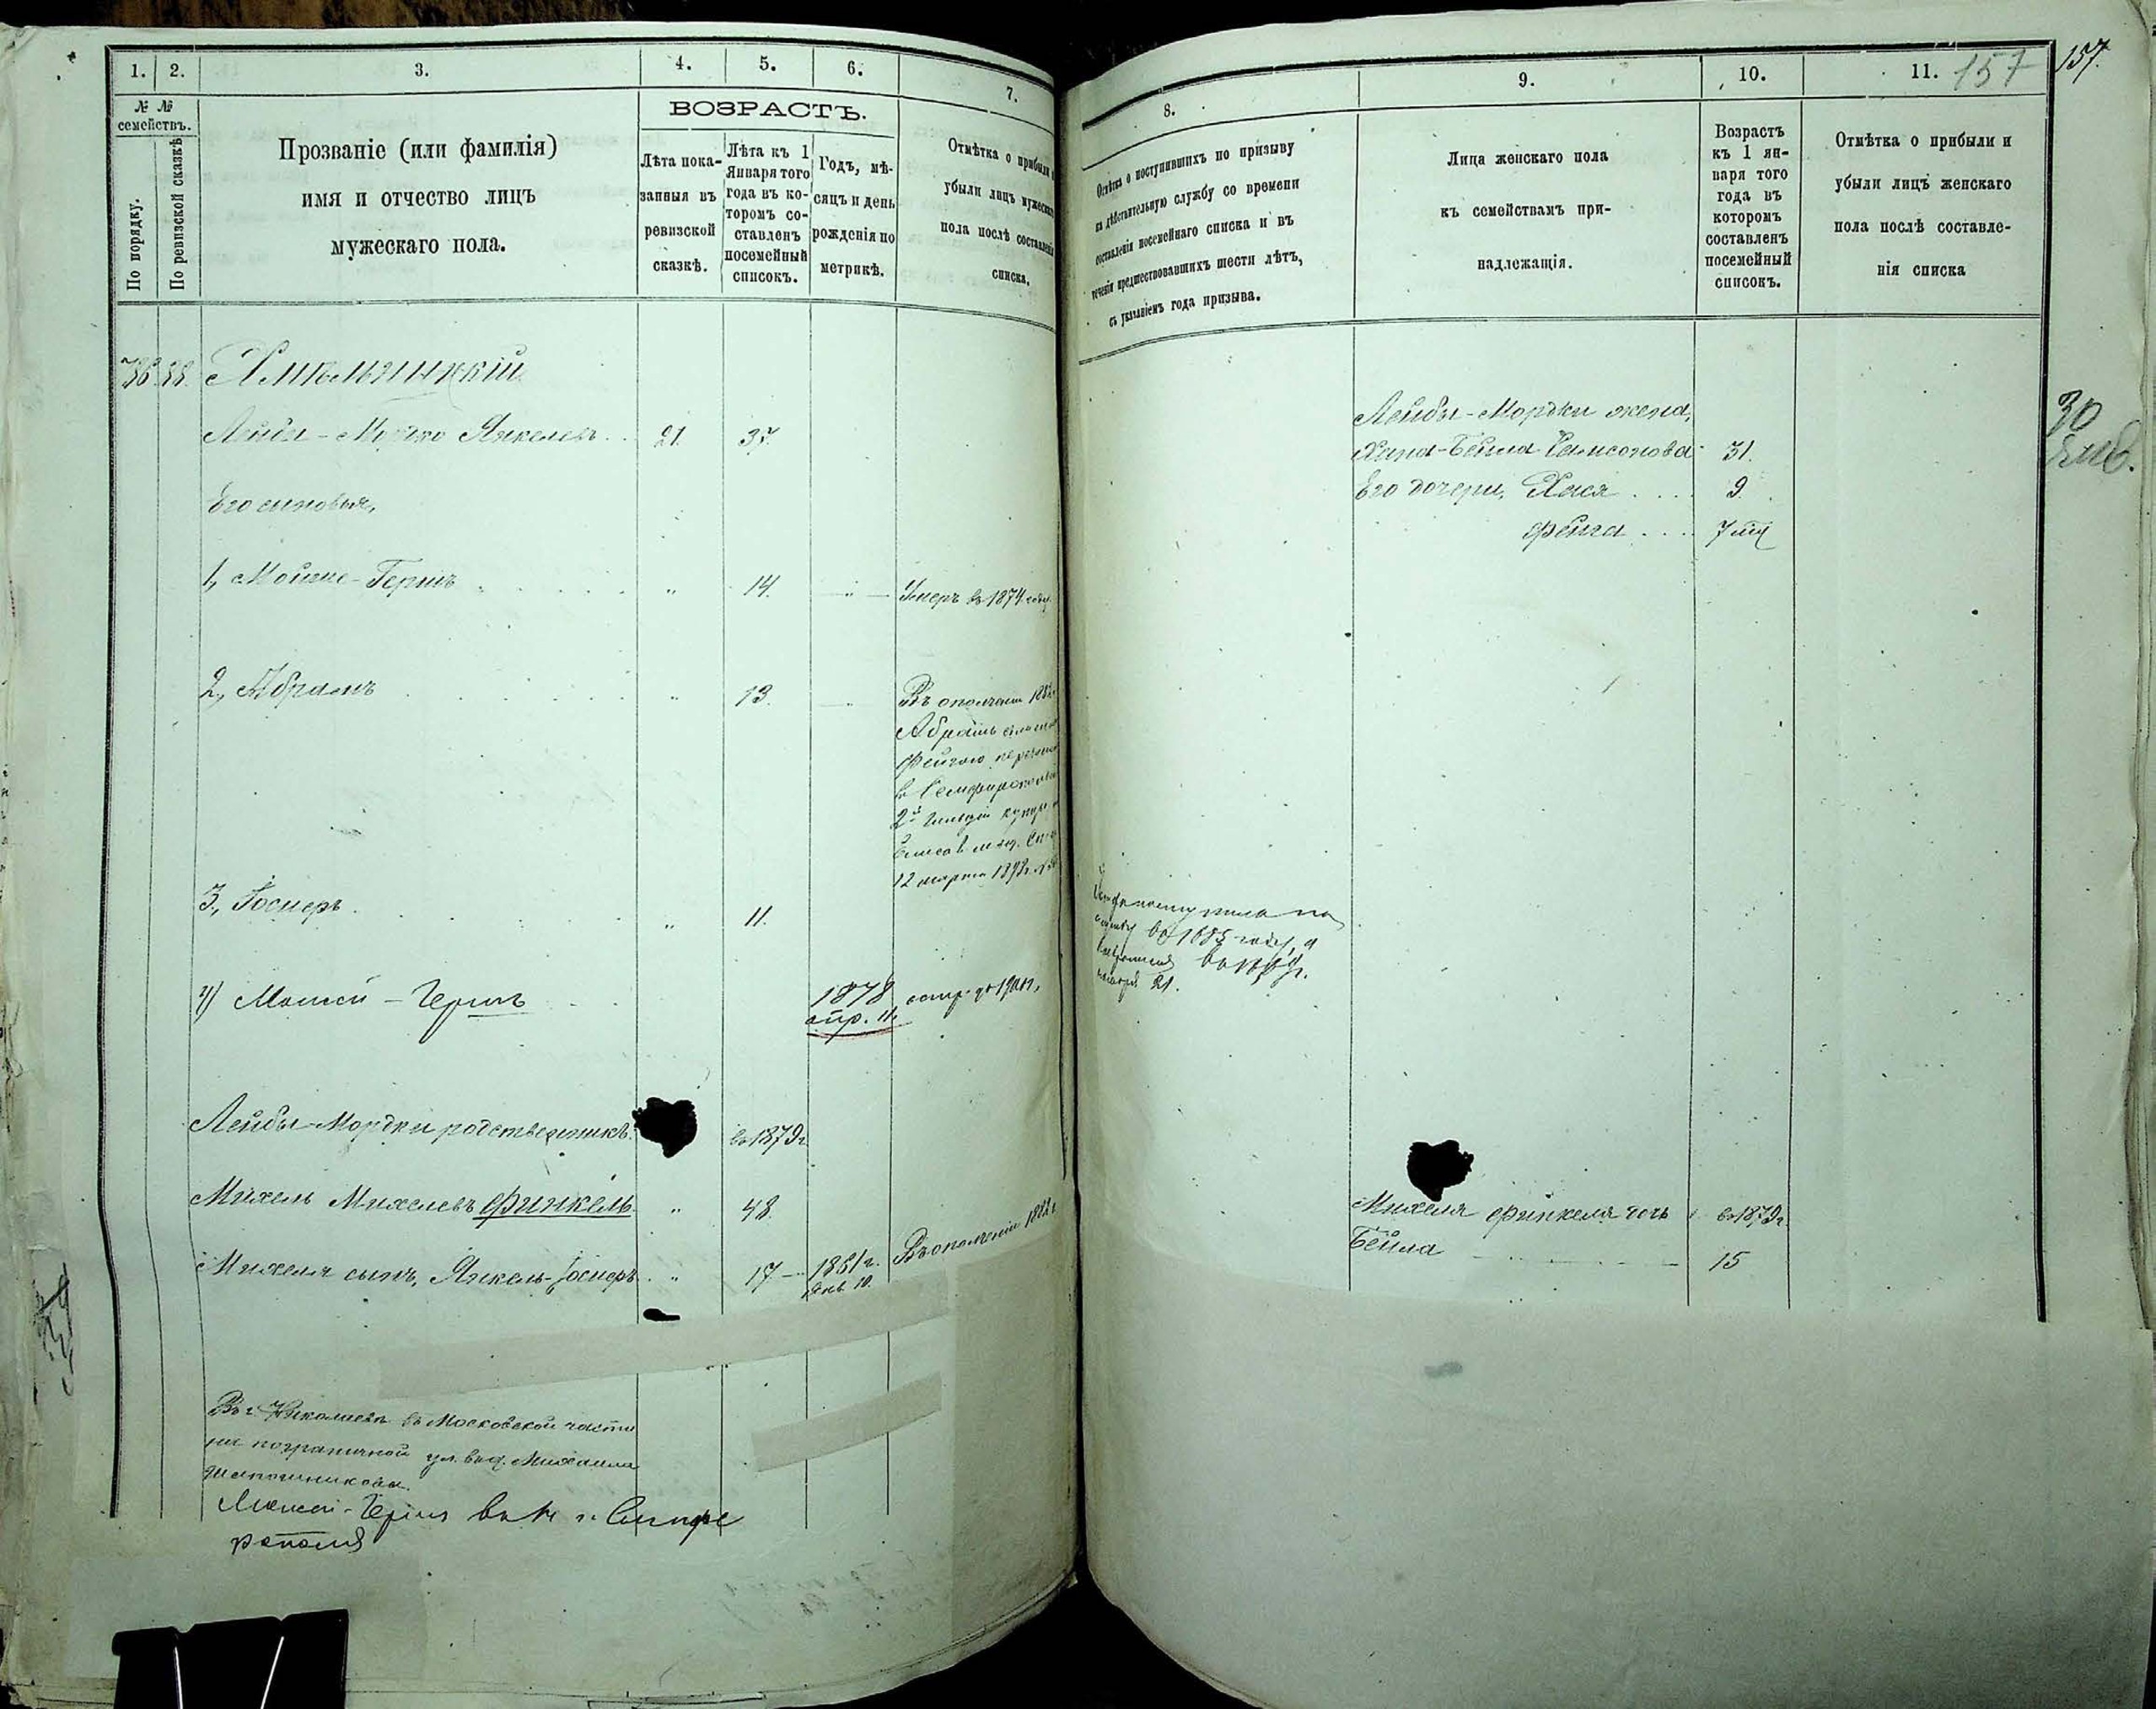 1. 2. 3. 4. 5. 6. 7.
№ №
семействъ.
По порядку.
По ревизской сказкѣ
Прозваніе (или фамилія)
имя и отчество лицъ
мужескаго пола.
ВОЗРАСТЪ.
Лѣта пока-
занныя въ
ревизской
сказкѣ.
Лѣта къ 1
Января того
года въ ко-
торомъ со-
ставленъ
посемейный
списокъ.
Годъ, мѣ-
сяцъ и день
рожденія по
метрикѣ.
Отмѣтка о прибыли и
убыли лицъ мужескаго
пола послѣ составленія
списка.
Хмѣльницкій
Лейба-Мордко Янкелевъ 21 37.
Его сыновья,
1, Мойше-Гершъ „ 14. „ Умеръ въ 1874 году.
2, Абрамъ „ 13. „ Въ ополченіи
Абрамъ
Фейгою
въ Симферопольскіе
2й гильдіи
12 марта
3, Іосперъ „ 11.
4) Мошко-Гершъ 1878
апр. 11.
Лейбы-Мордки родственникъ. въ 1879 г.
Михель Михелевъ Финкель „ 48.
Михеля сынъ, Янкель-Іосперъ „ 17 1861 г. Въ ополченіи 1882 г.
Янв. 10.
Въ г. Николаевѣ въ Московской части
на пограничной ул. въ д. Михаила
Шапошникова.
Гершъ въ г. Симфе
рополѣ
8. 9. 10. 11. 157 157.
Отмѣтка о поступившихъ по призыву
на дѣйствительную службу со времени
составленія посемейнаго списка и въ
теченіи предшествовавшихъ шести лѣтъ,
съ указаніемъ года призыва.
Лица женскаго пола
къ семействамъ при-
надлежащія.
Возрастъ
къ 1 ян-
варя того
года въ
которомъ
составленъ
посемейный
списокъ.
Отмѣтка о прибыли и
убыли лицъ женскаго
пола послѣ составле-
нія списка
Лейбы-Мордки жена,
Хана-Бейла Самсонова 31.
Его дочери, Хася 9.
Фейга 7
30
въ 1885 году, а
21.
Михеля Финкеля дочь въ 1879 г.
Бейла 15